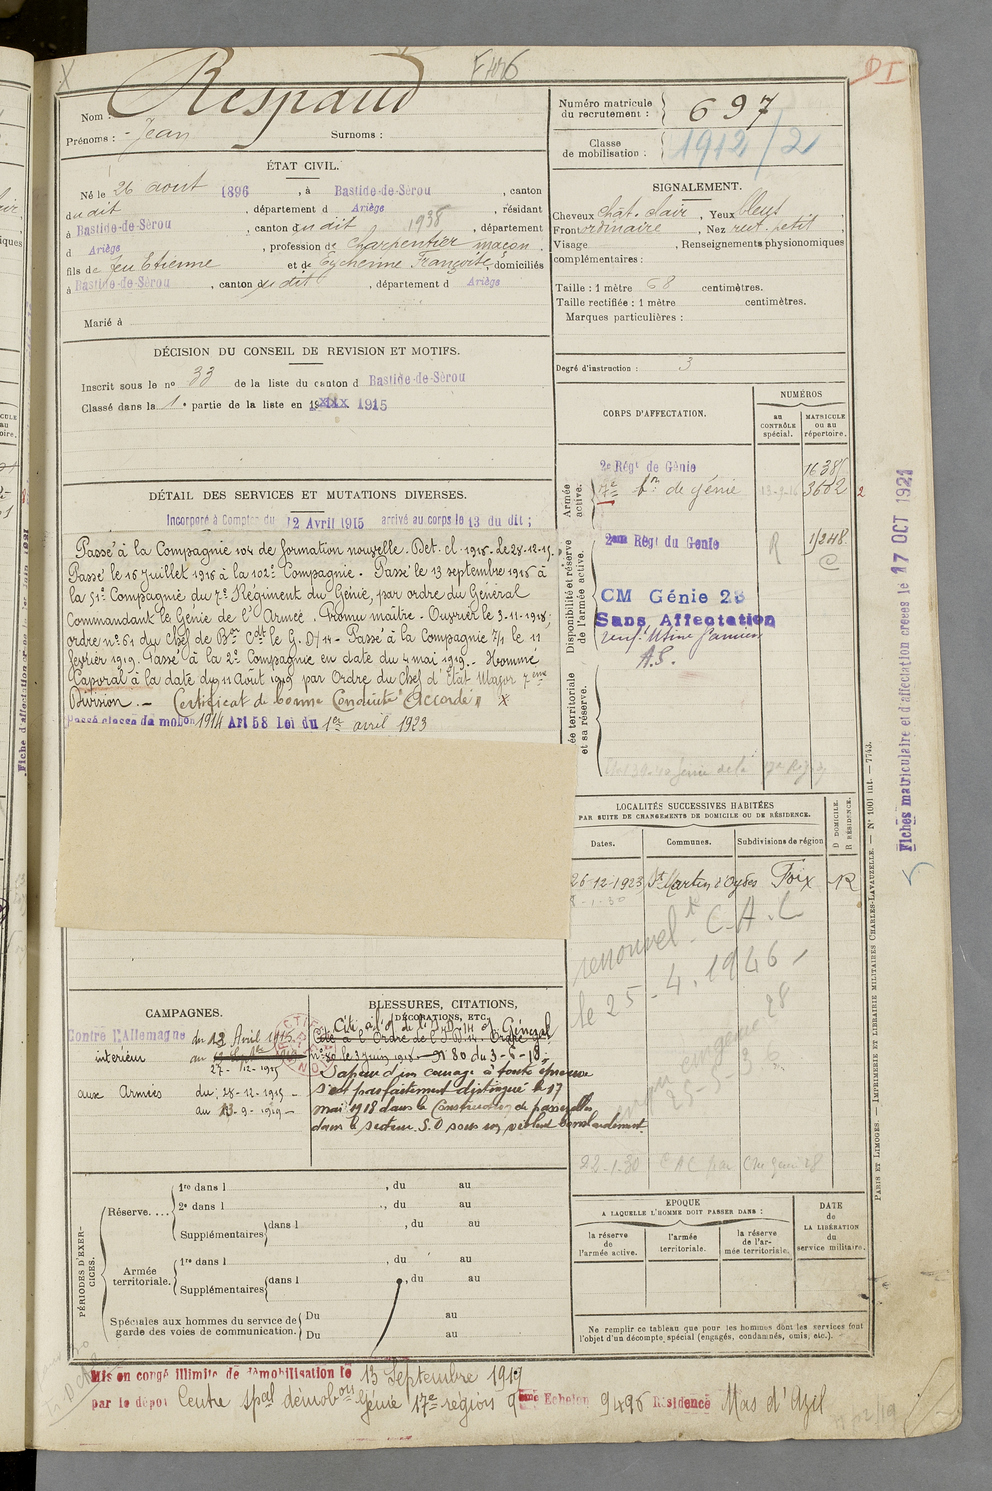 Nom : Respaud
Prénoms : - Jean Surnoms :
Numéro matricule du recrutement : 697
Classe de mobilisation : 1912/2
D I
ÉTAT CIVIL.
Né le 26 aout 1896, à Bastide-de-Sérou, canton
dudit, département d Ariège, résidant
à Bastide-de-Sérou, canton dudit 1938, département
d Ariège, profession de Charpentier maçon
fils de feu Etienne et de Eychenne Françoise, domiciliés
à Bastide-de-Sérou, canton dudit, département d Ariège
Marié à
SIGNALEMENT.
Cheveux chât. clair, Yeux bleus,
Front ordinaire, Nez rect. petit,
Visage , Renseignements physionomiques
complémentaires :
Taille : 1 mètre 68 centimètres.
Taille rectifiée : 1 mètre centimètres.
Marques particulières :
Degré d'instruction : 3
DÉCISION DU CONSEIL DE REVISION ET MOTIFS.
Inscrit sous le no 33 de la liste du canton d Bastide-de-Sérou
Classé dans la 1e partie de la liste en 1915
DÉTAIL DES SERVICES ET MUTATIONS DIVERSES.
Incorporé à Compter du 12 Avril 1915 arrivé au corps le 13 du dit ;
Passé à la Compagnie 104 de formation nouvelle. Det. cl. 1918. Le 28-12-15.
Passé le 16 Juillet 1916 à la 102e Compagnie. Passé le 13 septembre 1916 à
la 51e Compagnie du 7e Régiment du Génie, par ordre du Général
Commandant le Génie de l'Armée. Promu maître-Ouvrier le 3-11-1918;
ordre no 61 du Chef de Bon Cdt le G. D/14 - Passé à la Compagnie 7/1 le 11
fevrier 1919. Passé à la 2e Compagnie en date du 4 mai 1919.. Nommé
Caporal à la date du 11 Août 1919 par Ordre du Chef d'État Major 7ème
Division. - Certificat de bonne Conduite "Accordé" X
Passé classe de mobon 1914 Art 58 Loi du 1er avril 1923
CORPS D'AFFECTATION.
NUMÉROS
au CONTRÔLE spécial.
MATRICULE ou au répertoire.
Armée active.
2e Régt de Génie 16385
7e bn de génie 13-9-16 3602 2
Disponibilité et réserve de l'armée active.
2ème Régt du Génie R 1/248
C
CM Génie 28
Sans Affectation
A.S.
ée territoriale et sa réserve.
LOCALITÉS SUCCESSIVES HABITÉES
PAR SUITE DE CHANGEMENTS DE DOMICILE OU DE RÉSIDENCE.
Dates. Communes. Subdivisions de région
D DOMICILE.
R RÉSIDENCE.
26-12-1923 St Martin d'Oydes Foix R
renouvelt C. A. L
le 25 - 4. 1946 -
25-5-36
22-1-30 CAC par Cm Génie 28
CAMPAGNES.
Contre l'Allemagne du 12 Avril 1915
intérieur au
27-12-1915
aux Armées du : 28-12-1915 -
au 13-9-1919 -
BLESSURES, CITATIONS,
DÉCORATIONS, ETC.
Cité à l'Ordre de l'I.D.14. Ordre Gal
no 80 le 3 juin 1918 - no 80 du 3-6-18;
Sapeur d'un courage à toute épreuve
s'est parfaitement distingué le 17
mai 1918 dans la Construction de passerelles
dans le secteur S.O sous un violent bombardement.
PÉRIODES D'EXERCICES.
Réserve....
1re dans l , du au
2e dans l , du au
Supplémentaires dans l , du au
Armée territoriale.
1re dans l , du au
Supplémentaires dans l , du au
Spéciales aux hommes du service de garde des voies de communication.
Du au
Du au
EPOQUE
A LAQUELLE L'HOMME DOIT PASSER DANS :
la réserve de l'armée active.
l'armée territoriale.
la réserve de l'armée territoriale.
DATE de LA LIBÉRATION du service militaire.
Ne remplir ce tableau que pour les hommes dont les services font
l'objet d'un décompte spécial (engagés, condamnés, omis, etc.).
Mis en congé illimité de démobilisation le 13 Septembre 1919
par le dépôt Centre spal démobon Génie 17e région 9ème Echelon 9496 Résidence Mas d'Azil
Fiches matriculaire et d'affectation créées le 17 OCT 1921
PARIS ET LIMOGES. — IMPRIMERIE ET LIBRAIRIE MILITAIRES CHARLES-LAVAUZELLE. — No 1001 int. — 7743.